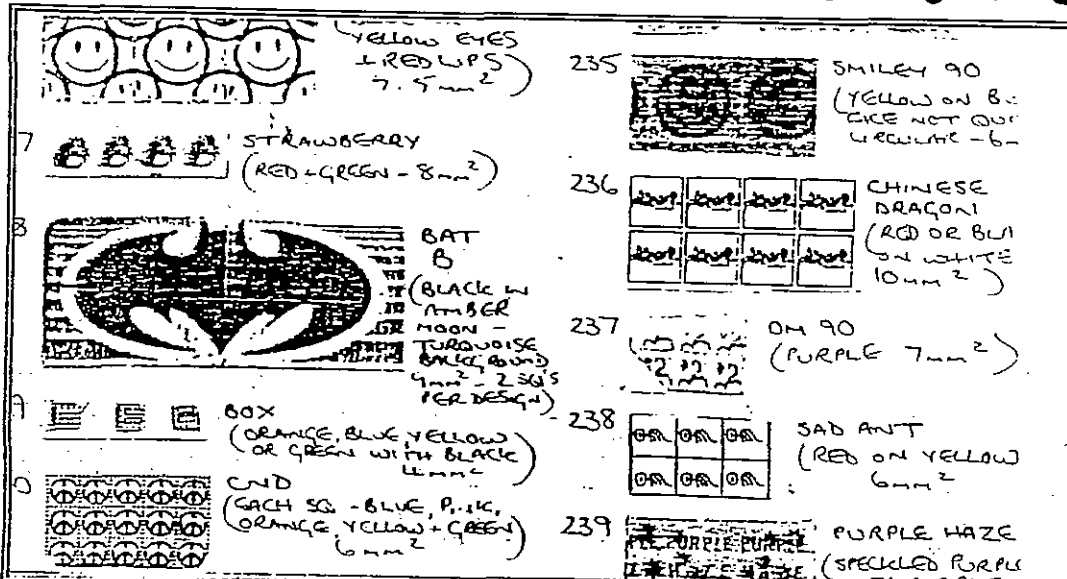 YELLOW EYES
+ RED LIPS
7.5mm²)
7
STRAWBERRY
(RED + GREEN - 8mm²)
8
BAT
B
(BLACK IN
AMBER
MOON -
TURQUOISE
BACKGROUND
4mm² - 2 SQ'S
PER DESIGN)
9
BOX
(ORANGE, BLUE, YELLOW
OR GREEN WITH BLACK
4mm²
CND
(EACH SQ - BLUE, PINK,
ORANGE, YELLOW + GREEN)
6mm²
235
SMILEY 90
(YELLOW ON
FACE NOT
CIRCULAR - 6
236
CHINESE
DRAGON
(RED OR
ON WHITE
10mm²)
237
OM 90
(PURPLE 7mm²)
238
SAD ANT
(RED ON YELLOW
6mm²
239
PURPLE PURPLE
PURPLE HAZE
(SPECKLED PURPLE